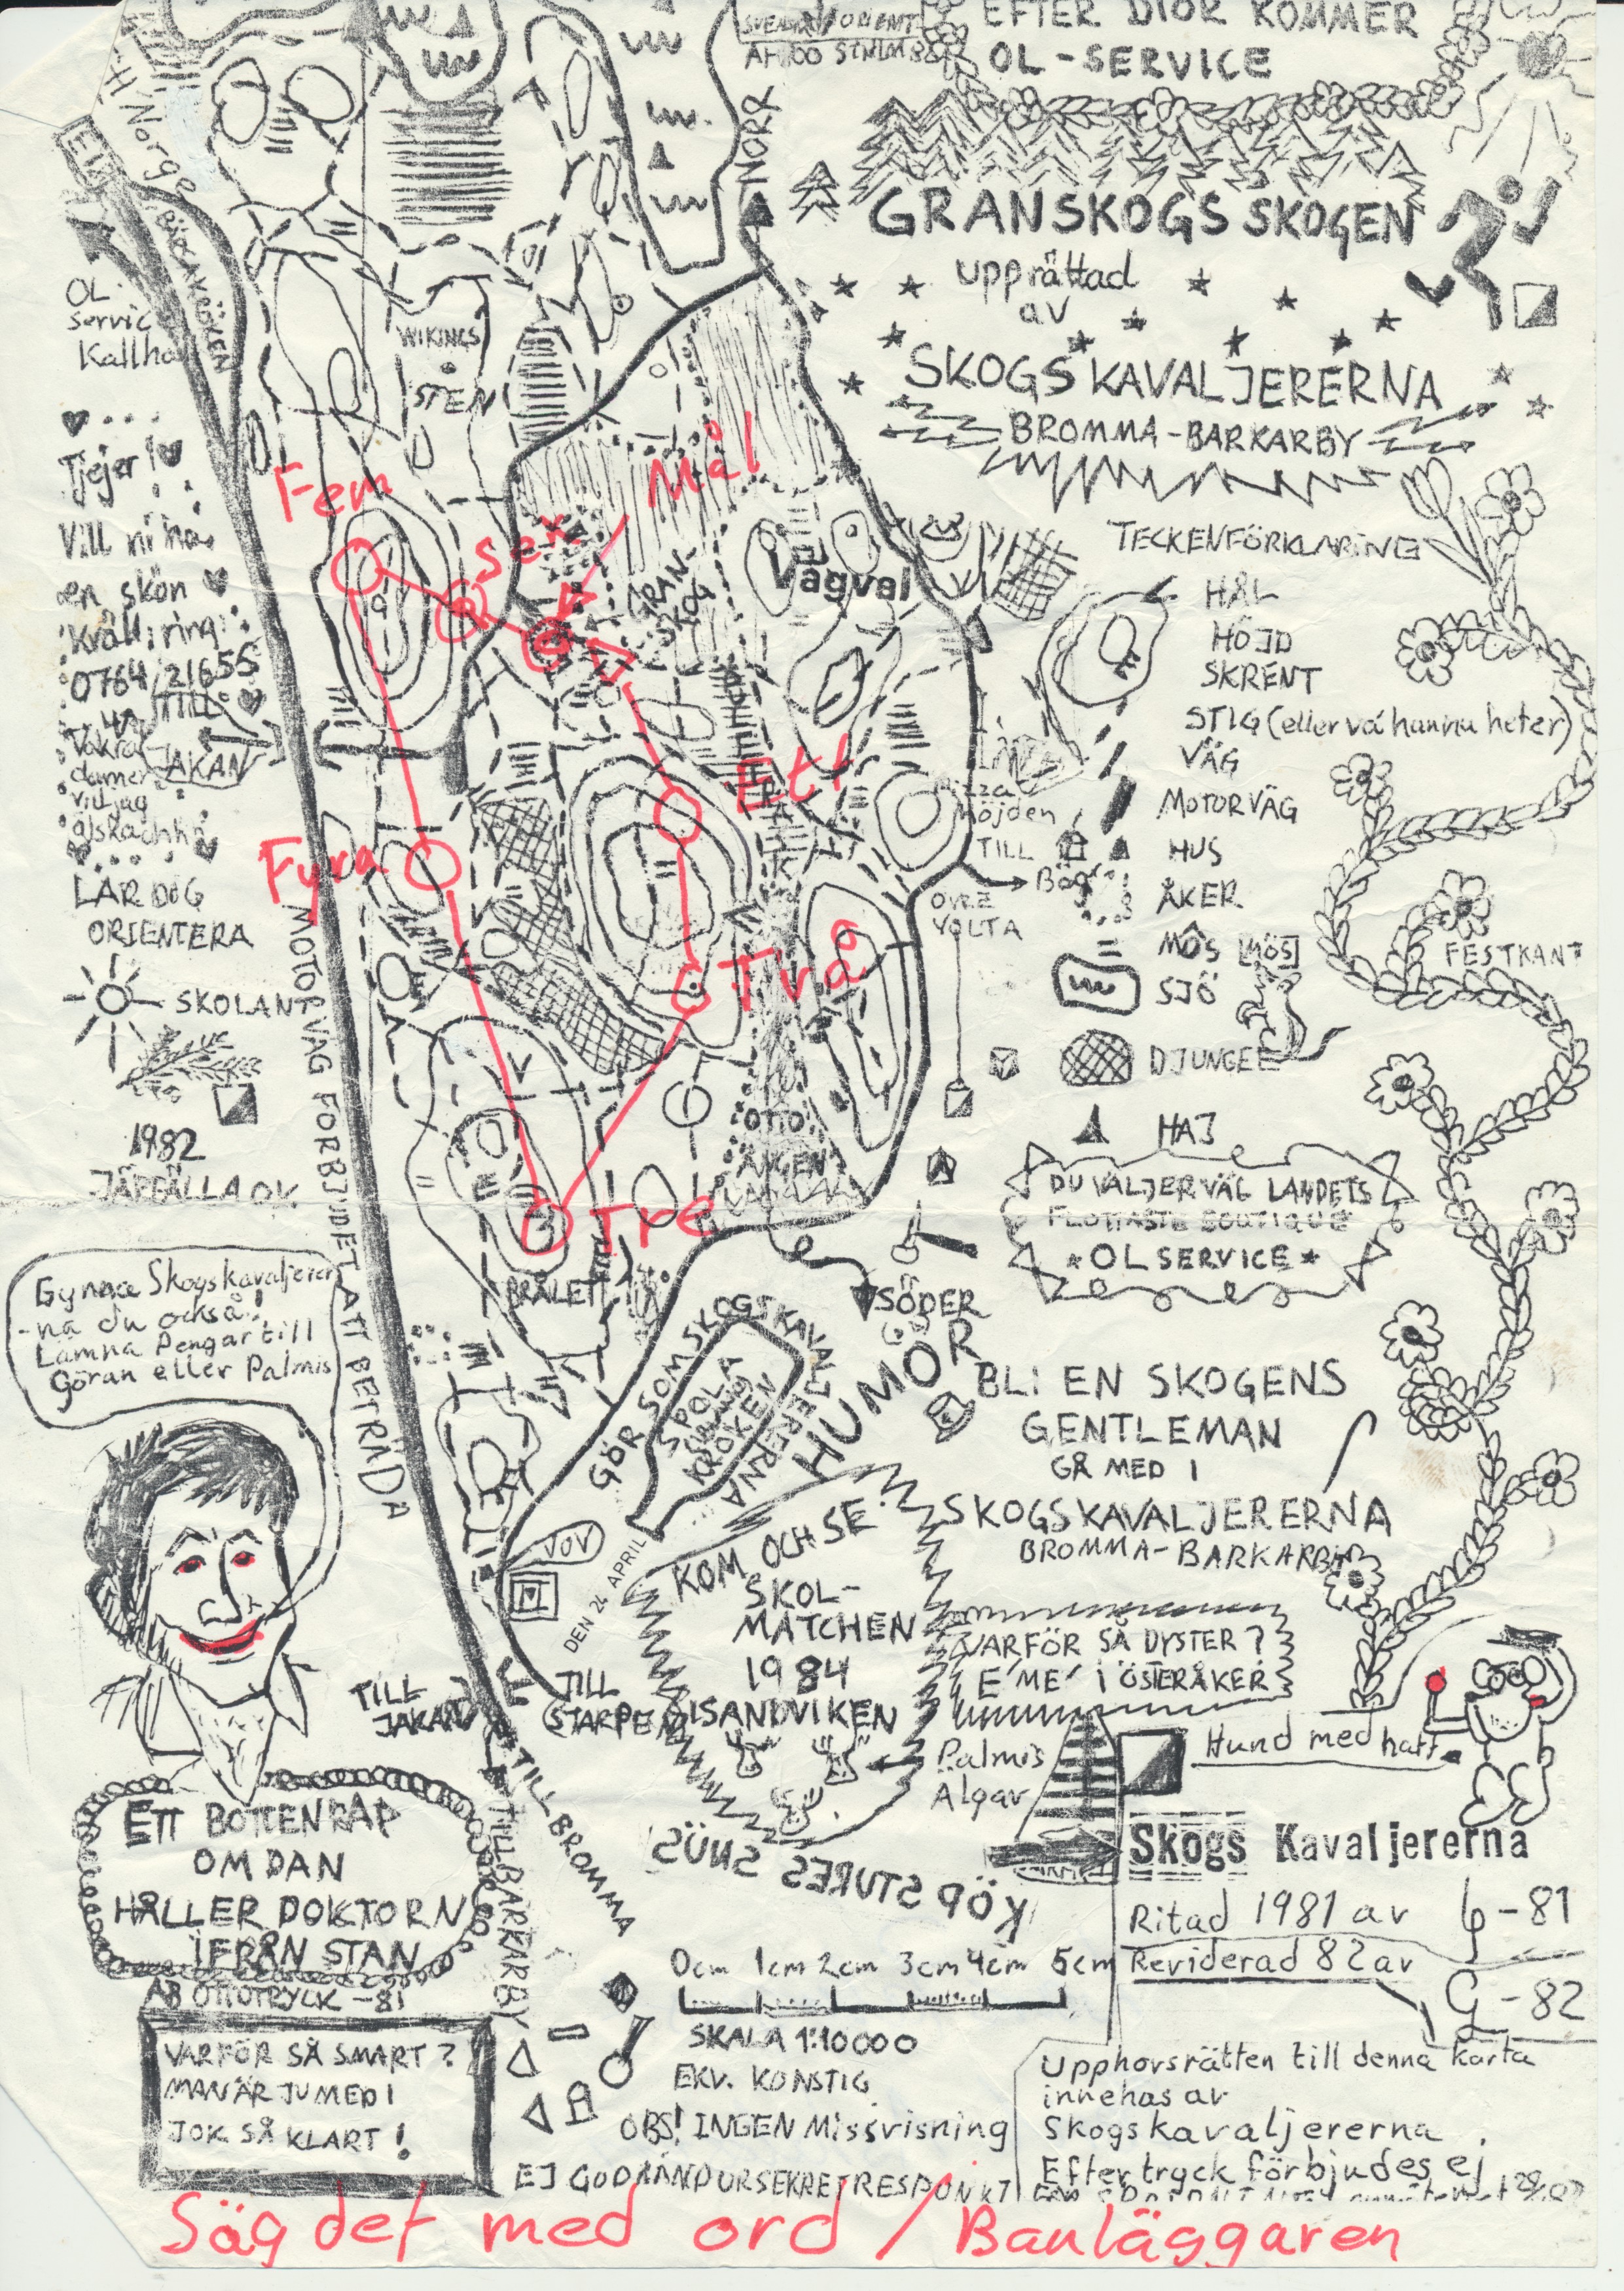 EFTER DIOR KOMMER
OL-SERVICE
NORR
GRANSKOGSSKOGEN
upprättad
av
SKOGSKAVALJERERNA
BROMMA-BARKARBY
Norge
OL
Kallhä
WIKINGS
STEN
Tjejer!
Vill ni ha
en skön
kväll, ring:
0764/21655
TILL
JAKAN
Vakra
damer
vill jag
älska
LÄR DIG
ORIENTERA
SKOLAN
1982
JÄRFÄLLA OK
Fem
Sex
Mål
GRAN-
SKOG
Vägval
Ett
Två
Tre
Fyra
MOTORVÄG FÖRBJUDET ATT BETRÄDA
höjden
TILL
ÖVRE
VOLTA
OTTO
ÄNGEN
SÖDER
TECKENFÖRKLARING
HÅL
HÖJD
SKRENT
STIG (eller va hannu heter)
VÄG
MOTORVÄG
HUS
ÅKER
MÔS [MÖS]
SJÖ
DJUNGEL
HAJ
FESTKANT
DU VÄLJER VÄL LANDETS
FLOTTASTE BOUTIQUE
*OLSERVICE*
Gynna Skogskavaljerer
-na du också!
Lämna Pengar till
Göran eller Palmis
GÖR SOM SKOGSKAVALJERERNA
SPOLA
KRÖKEN
HUMOR
BLI EN SKOGENS
GENTLEMAN
GÅ MED I
SKOGSKAVALJERERNA
BROMMA-BARKARBY
VOV
DEN 24 APRIL
KOM OCH SE
SKOL-
MATCHEN
1984
I SANDVIKEN
Palmis
Älgar
VARFÖR SÅ DYSTER?
E' ME' I ÖSTERÅKER
Hund med hatt
TILL
JAKAN
TILL
STARPEN
TILL BROMMA
TILL BARKARBY
KÖP STURES SNÜS
Skogs Kavaljererna
Ritad 1981 av G-81
Reviderad 82 av G-82
ETT BOTTENRAP
OM DAN
HÅLLER DOKTORN
IFRÅN STAN
AB OTTOTRYCK -81
VARFÖR SÅ SMART?
MAN ÄR JU MED I
JOK SÅ KLART!
0cm 1cm 2cm 3cm 4cm 5cm
SKALA 1:10000
EKV. KONSTIG
OBS! INGEN Missvisning
EJ GODKÄND UR SEKRETRESPÜNKT
Upphovsrätten till denna karta
innehas av
Skogskavaljererna.
Eftertryck förbjudes ej
Säg det med ord / Banläggaren